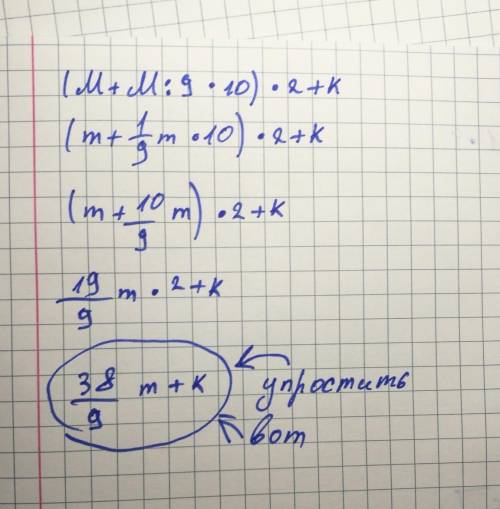 (M + M : 9 · 10) · 2 + K
(m + 1/9 m · 10) · 2 + K
(m + 10/9 m) · 2 + K
19/9 m · 2 + K
38/9 m + K упростить
вот